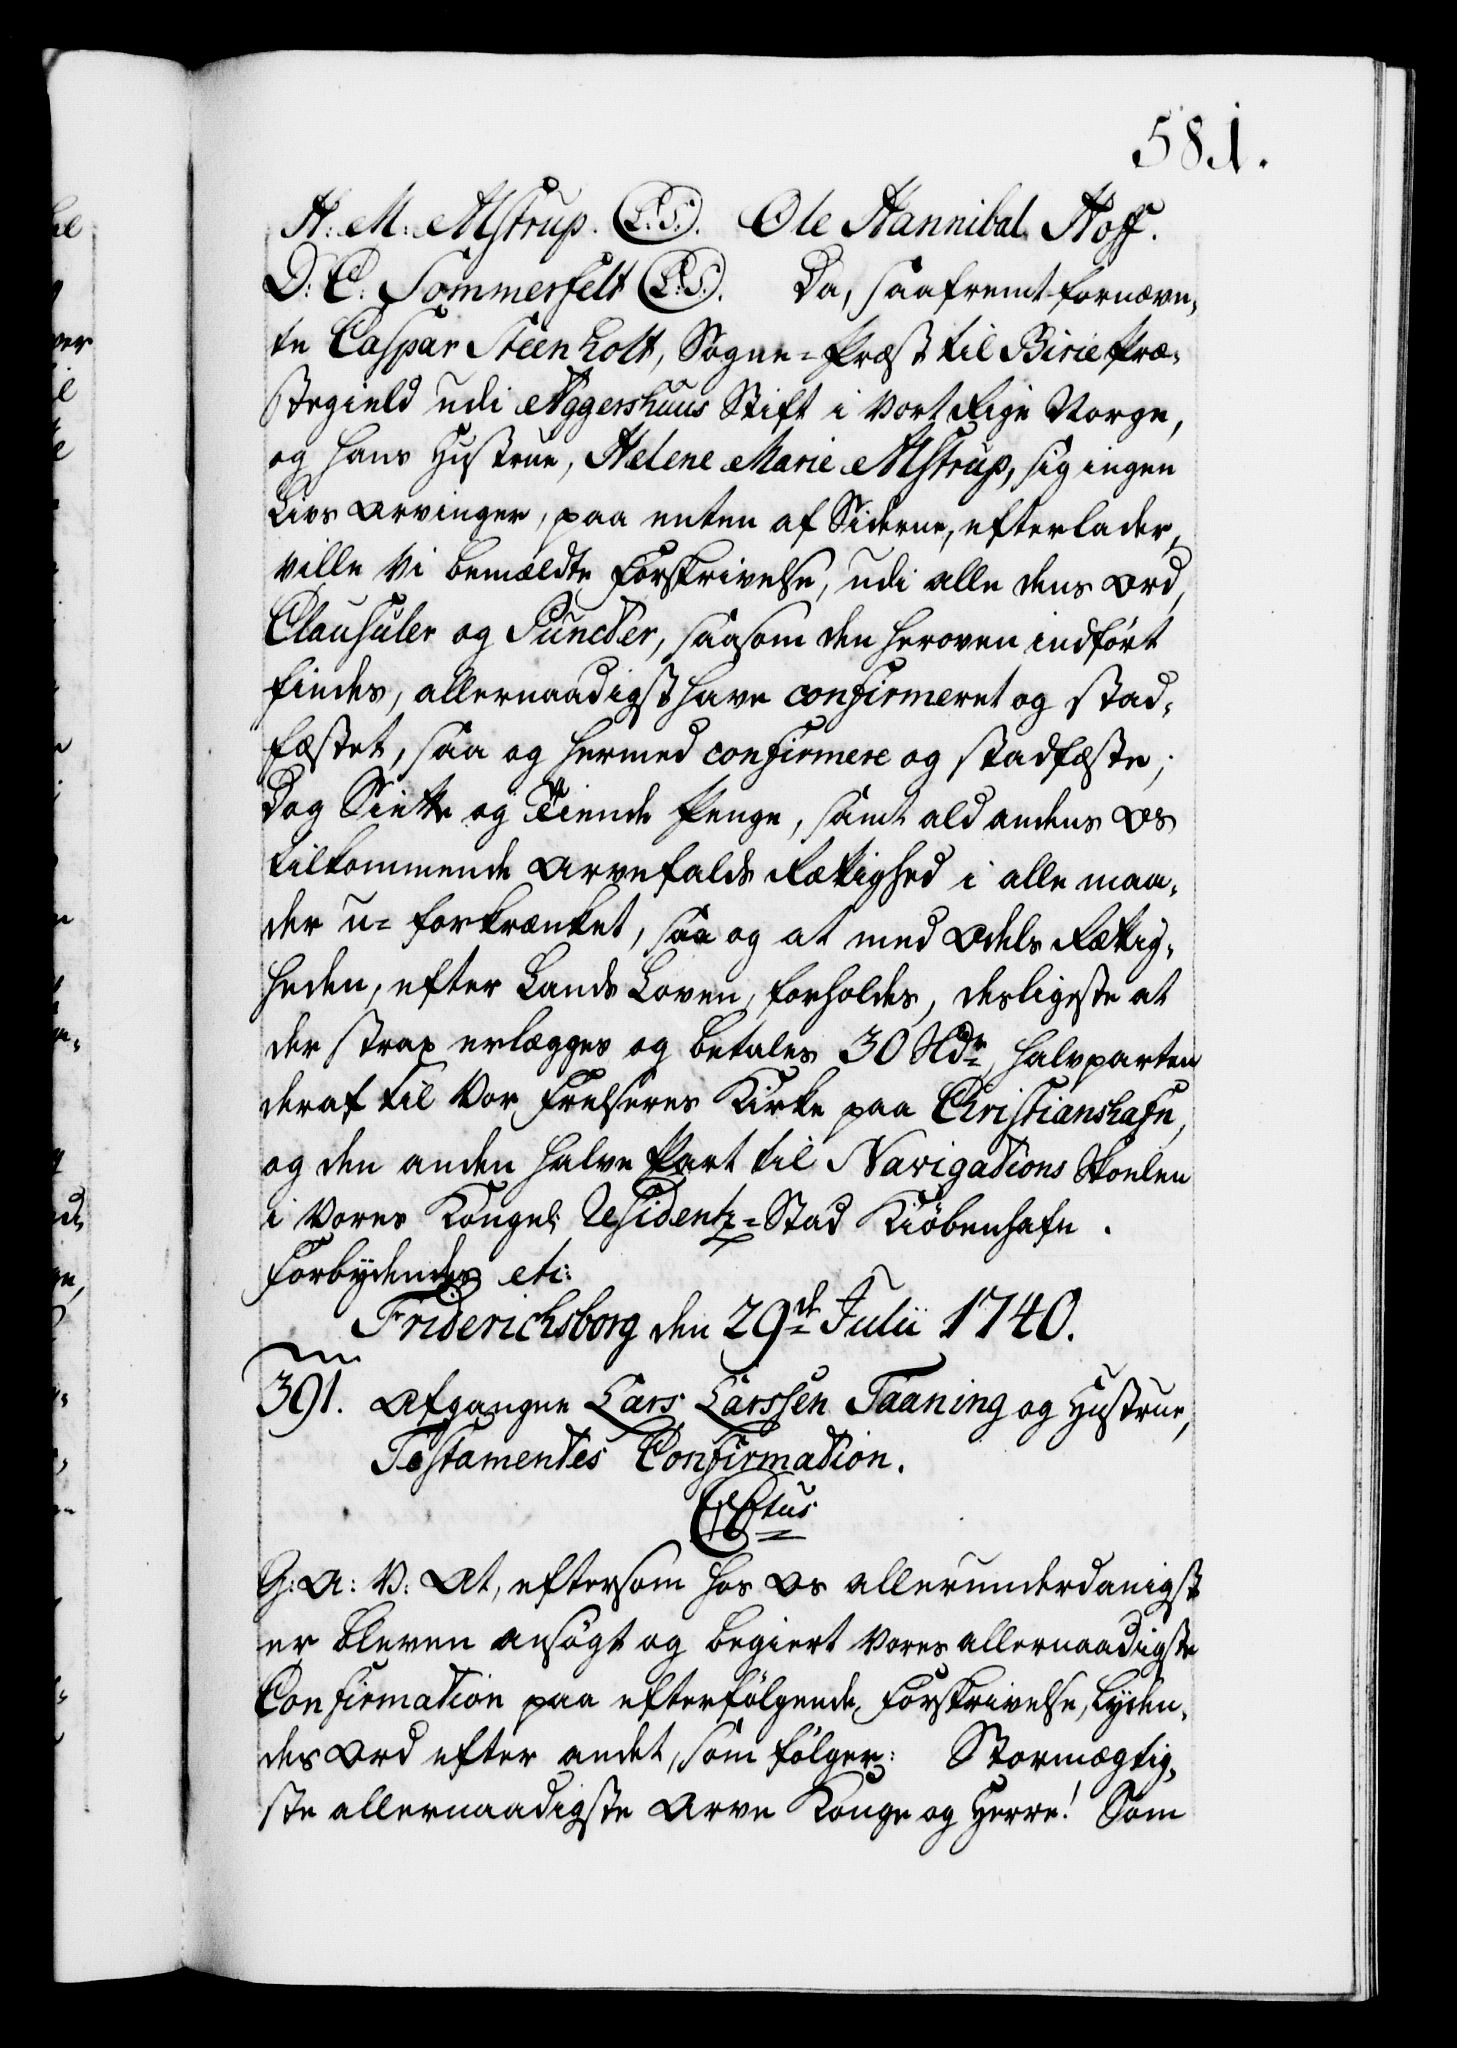 581.
H: M: Alstrup. (L.S.). Ole Hannibal Hoff.
D: C: Sommerfelt (L.S.). Da, saafremt fornævn-
te Caspar Steenholt, Sogne-Præst til Birie Præ-
stegield udi Aggershuus Stift i Vort Rige Norge,
og hans Hustrue, Helene Marie Alstrup, sig ingen
Livs Arvinger, paa enten af Siderne, efterlader,
ville Vi bemældte Forskrivelse, udi alle dens Ord,
Clausuler og Puncter, saasom den heroven indført
findes, allernaadigst have confirmeret og stad-
fæstet, saa og hermed confirmere og stadfæste;
Dog Siette og Tiende Penge, samt ald andens Os
tilkommende Arvefalds Rettighed i alle maa-
der u-forkrænket, saa og at med Odels Rettig-
heden, efter Lands Loven, forholdes, desligeste at
der strax erlægges og betales 30 Rdr, halvparten
deraf til Vor Frelseres Kirke paa Christianshafn,
og den anden halve Part til Navigations Skoelen
i Vores Kongel: Residentz-Stad Kiøbenhafn.
Forbydendes etc:
Friderichsborg den 29de Julii 1740.
391. Afgangne Lars Larssen Taaning og Hustrue,
Testamentes Confirmation.
C Stus
G: A: V: At, eftersom hos Os allerunderdanigst
er bleven ansøgt og begiert Vores allernaadigste
Confirmation paa efterfølgende Forskrivelse, lyden-
des Ord efter andet, som følger: Stormægtig-
ste allernaadigste Arve Konge og Herre! Som